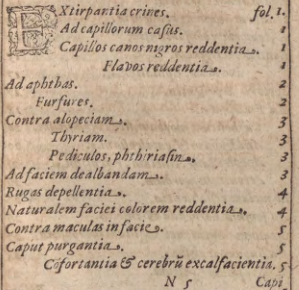 EXtirpantia crines. fol. 1.
Ad capillorum casus. 1
Capillos canos nigros reddentia. 1
Flavos reddentia. 1
Ad aphthas. 2
Furfures. 2
Contra alopeciam. 3
Thyriam. 3
Pediculos, phthiriasin. 3
Ad faciem dealbandam. 3
Rugas depellentia. 4
Naturalem faciei colorem reddentia. 4
Contra maculas in facie. 5
Caput purgantia. 5
Cõfortantia & cerebrũ excalfacientia. 5
N 5 Capi